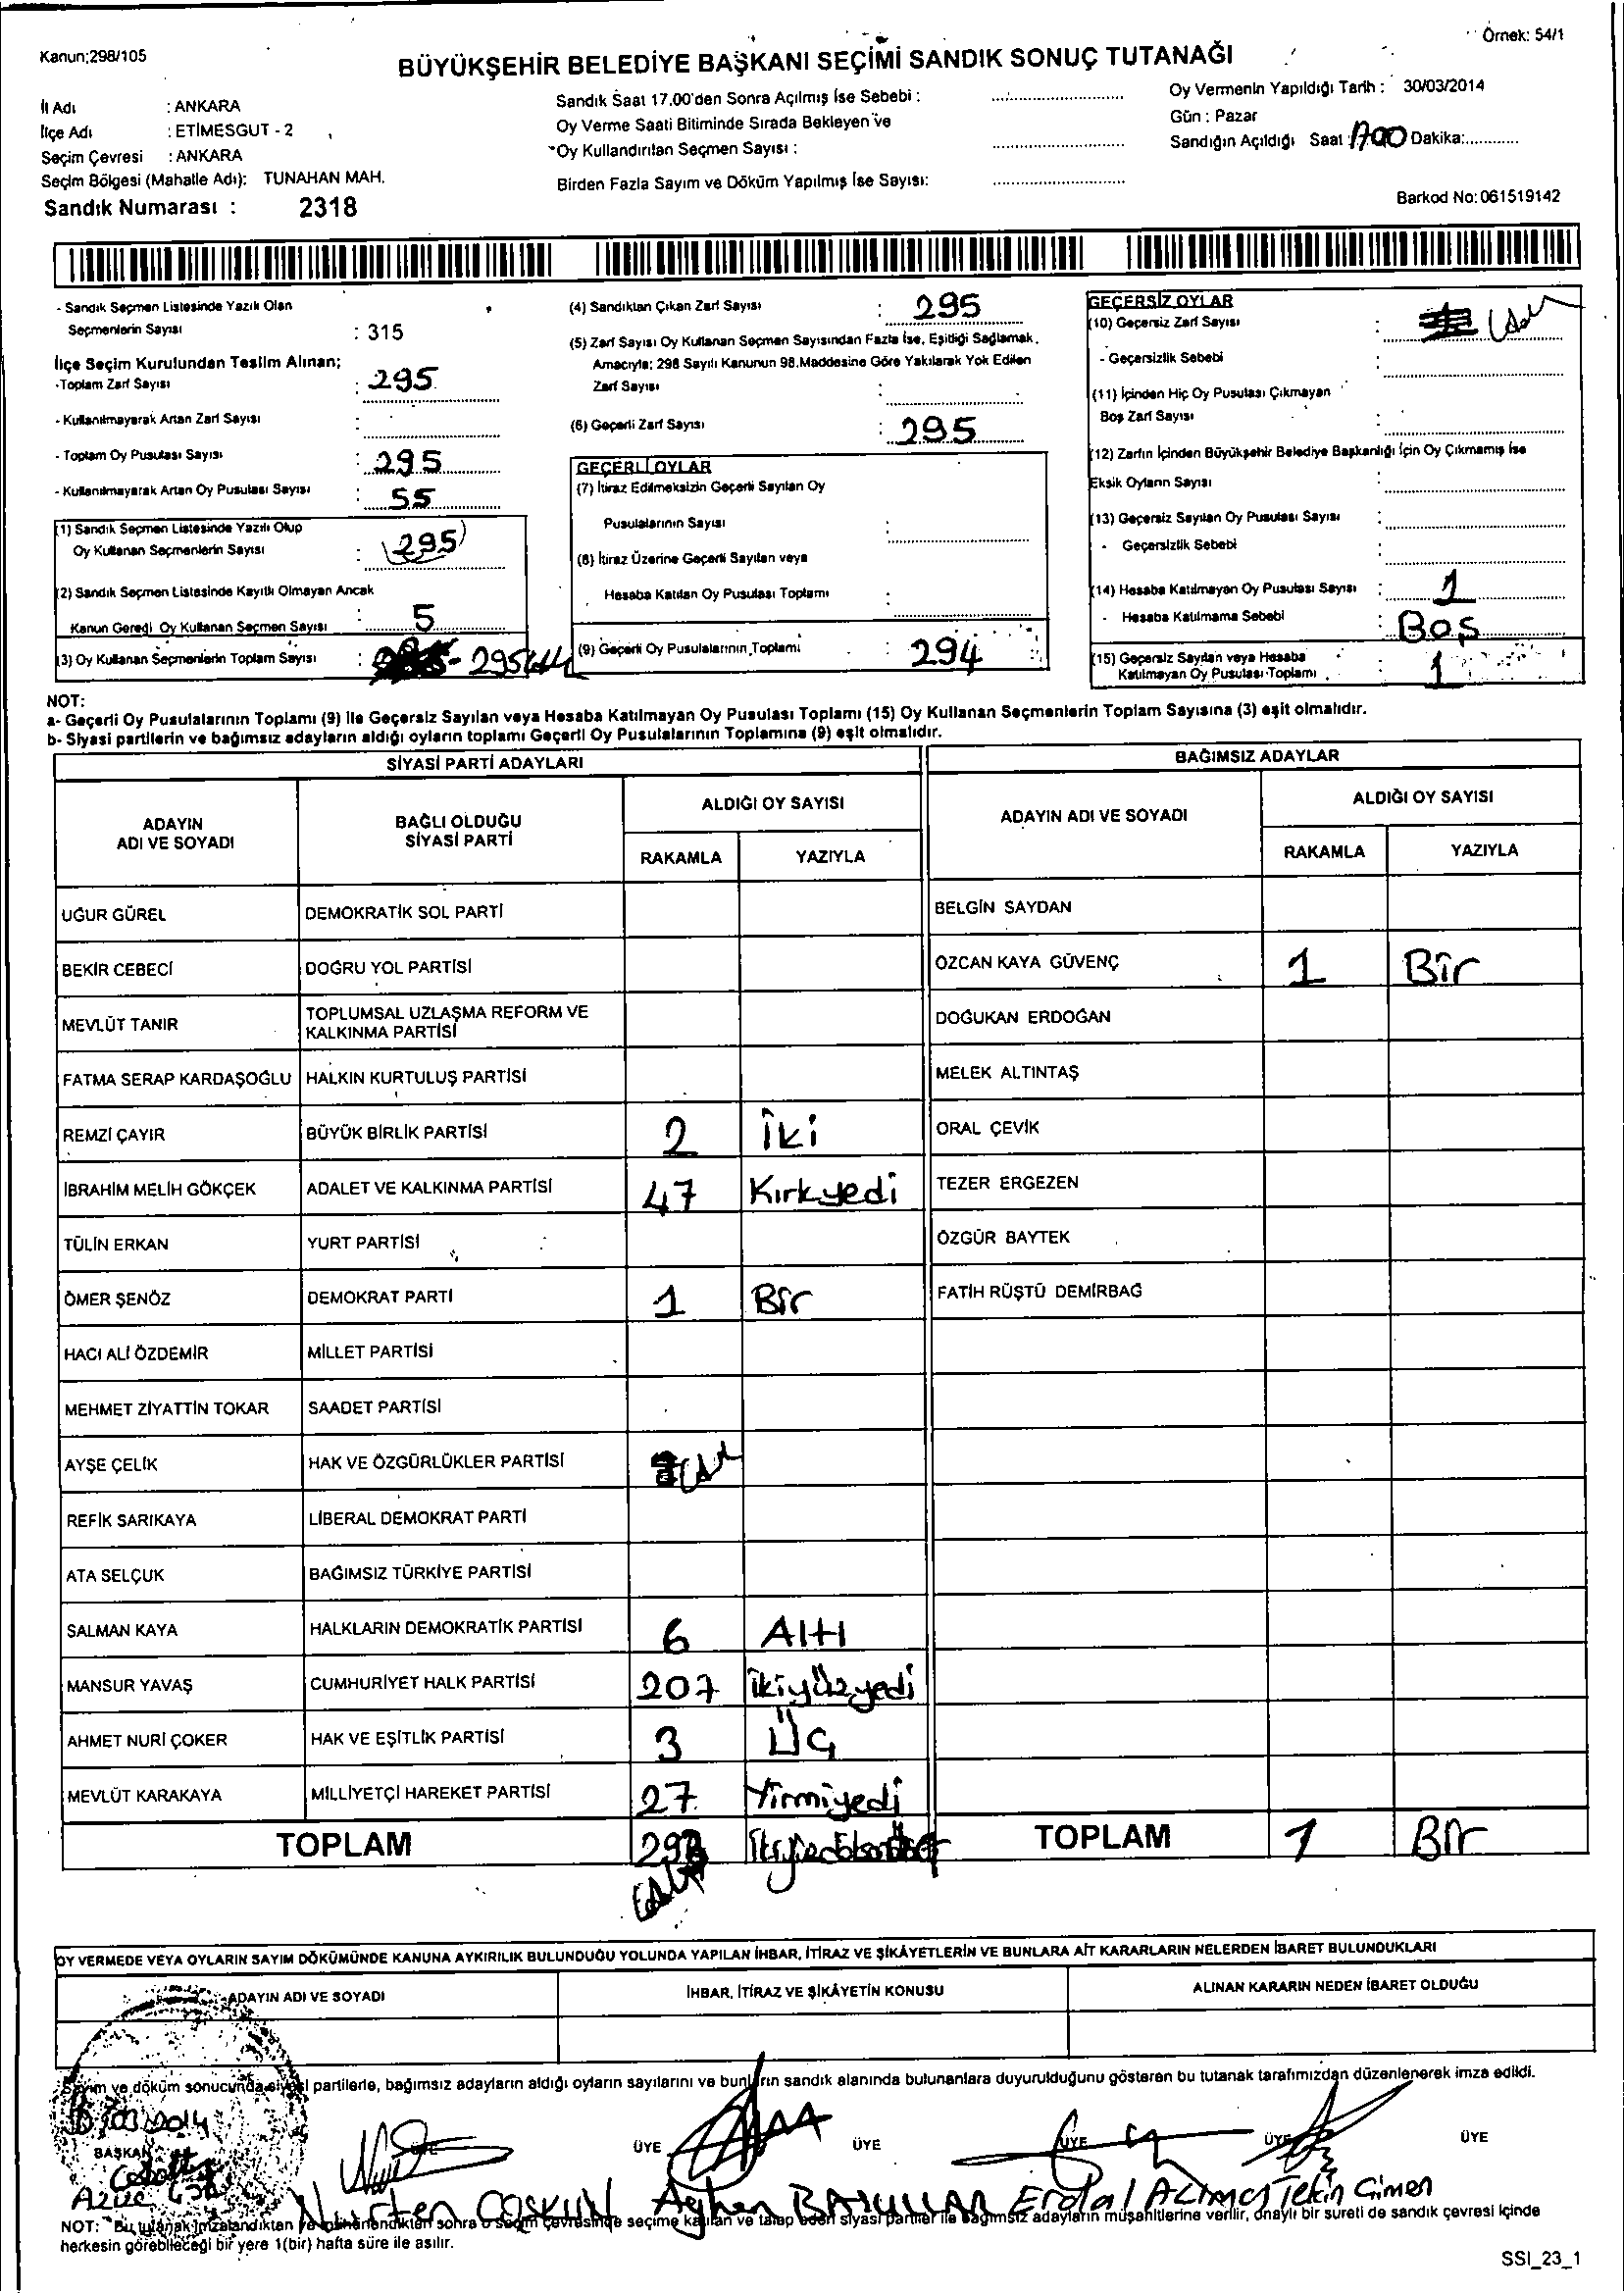 Kanun;298/105
Örnek: 54/1
BÜYÜKŞEHİR BELEDİYE BAŞKANI SEÇİMİ SANDIK SONUÇ TUTANAĞI
İl Adı : ANKARA
İlçe Adı : ETİMESGUT - 2
Seçim Çevresi : ANKARA
Seçim Bölgesi (Mahalle Adı): TUNAHAN MAH.
Sandık Numarası : 2318
Sandık Saat 17.00'den Sonra Açılmış İse Sebebi :
Oy Verme Saati Bitiminde Sırada Bekleyen ve
Oy Kullandırılan Seçmen Sayısı :
Birden Fazla Sayım ve Döküm Yapılmış İse Sayısı:
Oy Vermenin Yapıldığı Tarih : 30/03/2014
Gün : Pazar
Sandığın Açıldığı Saat: 17.00 Dakika:
Barkod No: 061519142
- Sandık Seçmen Listesinde Yazılı Olan
Seçmenlerin Sayısı : 315
İlçe Seçim Kurulundan Teslim Alınan;
-Toplam Zarf Sayısı : 295
- Kullanılmayarak Artan Zarf Sayısı :
- Toplam Oy Pusulası Sayısı : 295
- Kullanılmayarak Artan Oy Pusulası Sayısı : 55
(1) Sandık Seçmen Listesinde Yazılı Olup
Oy Kullanan Seçmenlerin Sayısı : (295)
(2) Sandık Seçmen Listesinde Kayıtlı Olmayan Ancak
Kanun Gereği Oy Kullanan Seçmen Sayısı : 5
(3) Oy Kullanan Seçmenlerin Toplam Sayısı : 295
(4) Sandıktan Çıkan Zarf Sayısı : 295
(5) Zarf Sayısı Oy Kullanan Seçmen Sayısından Fazla İse, Eşitliği Sağlamak
Amacıyla; 298 Sayılı Kanunun 98.Maddesine Göre Yakılarak Yok Edilen
Zarf Sayısı :
(6) Geçerli Zarf Sayısı : 295
GEÇERLİ OYLAR
(7) İtiraz Edilmeksizin Geçerli Sayılan Oy
Pusulalarının Sayısı :
(8) İtiraz Üzerine Geçerli Sayılan veya
Hesaba Katılan Oy Pusulası Toplamı :
(9) Geçerli Oy Pusulalarının Toplamı : 294
GEÇERSİZ OYLAR
(10) Geçersiz Zarf Sayısı :
- Geçersizlik Sebebi :
(11) İçinden Hiç Oy Pusulası Çıkmayan
Boş Zarf Sayısı :
(12) Zarfın İçinden Büyükşehir Belediye Başkanlığı İçin Oy Çıkmamış İse
Eksik Oyların Sayısı :
(13) Geçersiz Sayılan Oy Pusulası Sayısı :
- Geçersizlik Sebebi :
(14) Hesaba Katılmayan Oy Pusulası Sayısı : 1
- Hesaba Katılmama Sebebi : Boş
(15) Geçersiz Sayılan veya Hesaba
Katılmayan Oy Pusulası Toplamı : 1
NOT:
a- Geçerli Oy Pusulalarının Toplamı (9) ile Geçersiz Sayılan veya Hesaba Katılmayan Oy Pusulası Toplamı (15) Oy Kullanan Seçmenlerin Toplam Sayısına (3) eşit olmalıdır.
b- Siyasi partilerin ve bağımsız adayların aldığı oyların toplamı Geçerli Oy Pusulalarının Toplamına (9) eşit olmalıdır.
SİYASİ PARTİ ADAYLARI
BAĞIMSIZ ADAYLAR
ADAYIN ADI VE SOYADI
BAĞLI OLDUĞU SİYASİ PARTİ
ALDIĞI OY SAYISI
RAKAMLA YAZIYLA
ADAYIN ADI VE SOYADI
ALDIĞI OY SAYISI
RAKAMLA YAZIYLA
UĞUR GÜREL DEMOKRATİK SOL PARTİ BELGİN SAYDAN
BEKİR CEBECİ DOĞRU YOL PARTİSİ ÖZCAN KAYA GÜVENÇ 1 Bir
MEVLÜT TANIR TOPLUMSAL UZLAŞMA REFORM VE KALKINMA PARTİSİ DOĞUKAN ERDOĞAN
FATMA SERAP KARDAŞOĞLU HALKIN KURTULUŞ PARTİSİ MELEK ALTINTAŞ
REMZİ ÇAYIR BÜYÜK BİRLİK PARTİSİ 2 İki ORAL ÇEVİK
İBRAHİM MELİH GÖKÇEK ADALET VE KALKINMA PARTİSİ 47 Kırkyedi TEZER ERGEZEN
TÜLİN ERKAN YURT PARTİSİ ÖZGÜR BAYTEK
ÖMER ŞENÖZ DEMOKRAT PARTİ 1 Bir FATİH RÜŞTÜ DEMİRBAĞ
HACI ALİ ÖZDEMİR MİLLET PARTİSİ
MEHMET ZİYATTİN TOKAR SAADET PARTİSİ
AYŞE ÇELİK HAK VE ÖZGÜRLÜKLER PARTİSİ
REFİK SARIKAYA LİBERAL DEMOKRAT PARTİ
ATA SELÇUK BAĞIMSIZ TÜRKİYE PARTİSİ
SALMAN KAYA HALKLARIN DEMOKRATİK PARTİSİ 6 Altı
MANSUR YAVAŞ CUMHURİYET HALK PARTİSİ 207 ikiyüzyedi
AHMET NURİ ÇOKER HAK VE EŞİTLİK PARTİSİ 3 Üç
MEVLÜT KARAKAYA MİLLİYETÇİ HAREKET PARTİSİ 27 Yirmiyedi
TOPLAM TOPLAM 1 Bir
OY VERMEDE VEYA OYLARIN SAYIM DÖKÜMÜNDE KANUNA AYKIRILIK BULUNDUĞU YOLUNDA YAPILAN İHBAR, İTİRAZ VE ŞİKÂYETLERİN VE BUNLARA AİT KARARLARIN NELERDEN İBARET BULUNDUKLARI
ADAYIN ADI VE SOYADI İHBAR, İTİRAZ VE ŞİKÂYETİN KONUSU ALINAN KARARIN NEDEN İBARET OLDUĞU
Sayım ve döküm sonucunda siyasi partilerle, bağımsız adayların aldığı oyların sayılarını ve bunların sandık alanında bulunanlara duyurulduğunu gösteren bu tutanak tarafımızdan düzenlenerek imza edildi.
BAŞKAN ÜYE ÜYE ÜYE ÜYE ÜYE ÜYE
Nurten COŞKUN Erdal Tekin Çimen
NOT: Bu tutanak imzalandıktan ve mühürlendikten sonra o seçim çevresinde seçime katılan ve talep eden siyasi partiler ile bağımsız adayların müşahitlerine verilir, onaylı bir sureti de sandık çevresi içinde
herkesin görebileceği bir yere 1(bir) hafta süre ile asılır.
SSI_23_1